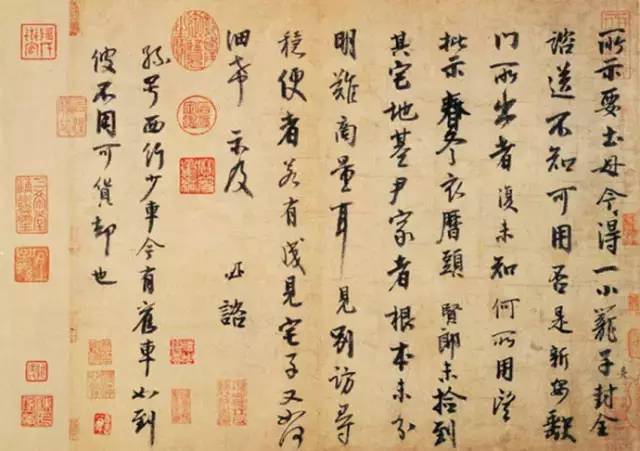 所示要土母今得一小籠子封全
諮送不知可用否是新安缺
門所出者復未知何所用望
批示春冬衣曆頭賢郎未撿到
其宅地基尹家者根本未分
明難商量耳見別訪尋
穩便者若有成見宅子又如何
細希示及必諮
孫号西行少車今有舊車如到
彼不用可貨却也